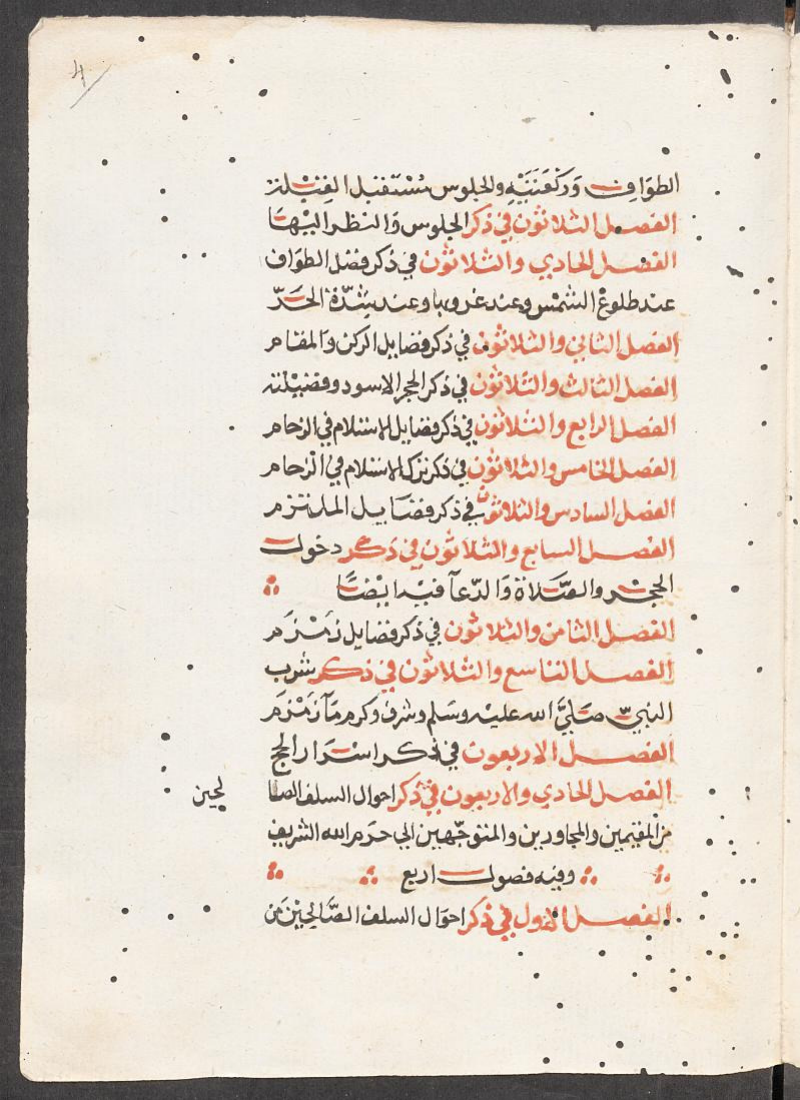 4
الطوَاف وَرَكْعَتَيْهِ والجلوس مُسْتَقبل القِبْلة
الفصل الثلاثون في ذكر الجلوس وَالنظر اليْها
الفصل الحادي والثلاثون في ذكر فضل الطوَاف
عند طلوع الشمس وعند غروبها وعند شدّة الحَرّ
الفصل الثاني والثلاثون في ذكر فضايل الركن وَالمقام
الفصل الثالث والثلاثون في ذكر الحجر الاسود وفضيْلته
الفصل الرابع والثلاثون في ذكر فضايل الاستلام في الزحام
الفصل الخامس والثلاثون في ذكر ترك الاستلام في الزحام
الفصل السادس والثلاثون في ذكر فضايل الملتزم
الفصل السابع والثلاثون في ذكر دخول
الحجر والصَّلاة وَالدّعآ فيه ايْضًا
الفصل الثامن والثلاثون في ذكر فضايل زمْزم
الفصل التاسع والثلاثون في ذكر شرب
النبي صَلىَّ الله عليه وسَلم وشرف وكرم مآ زمْزم
الفصل الاربعون في ذكر اسْرَار الحج
الفصل الحادي والاربعون في ذكر احوال السلف الصا
لحين
من المقيمين والمجاورين والمتوجّهين الي حرَم الله الشريف
وفيه فصول اربع
الفصل الاول في ذكر احوَال السلف الصَّالحِيْن مَن